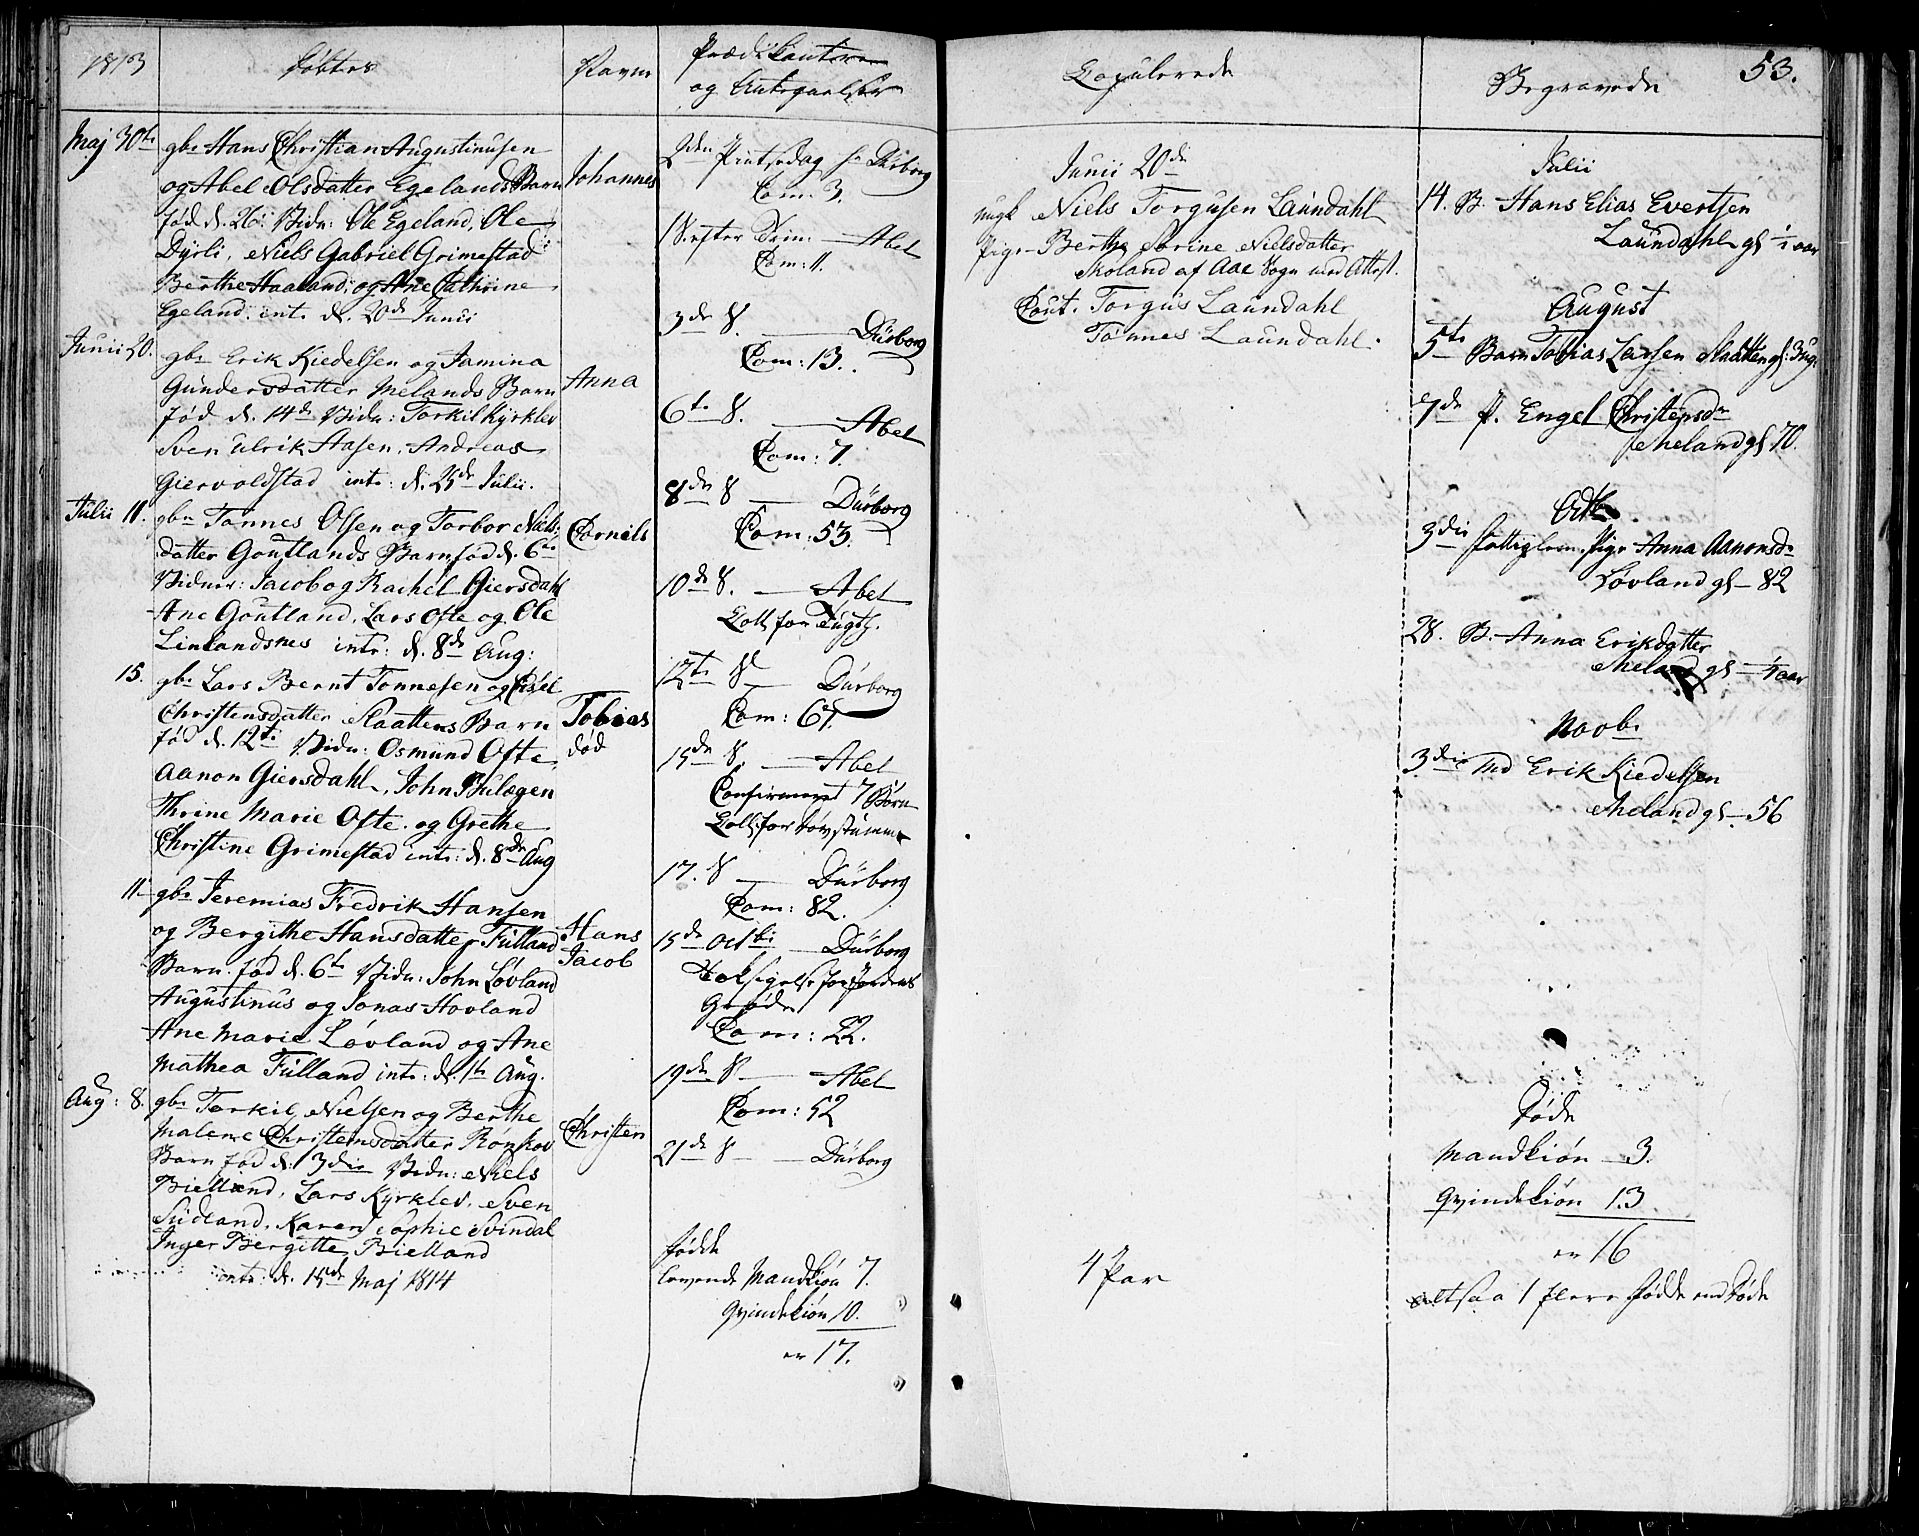 1813
Døbtes
Navne
Prædikanterne
og Antegnelser
Maj 30te
gbr Hans Christian Augustinusen
og Abel Olsdatter Egelands Barn
fød d. 26: Vidn: Ole Egeland, Ole
Dyrli, Niels Gabriel Grimestad
Berthe Haaland, og Ane Cathrine
Egeland. intr. d. 20de Junii
Johannes
Junii 20.
gbr Erik Kiedelsen og Jamina
Gundersdatter Melands Barn
fød d. 14de Vidn: Torkil Kyrklev
Sven Ulrik Aasen, Andreas
Giervoldstad intr: d. 25de Julii.
Anna
Julii 11.
gbr Tønnes Olsen og Torbor Niels-
datter Goutlands Barn fød d. 6te
Vidner: Jacob og Rachel Giersdahl
Ane Goutland, Lars Ofte og Ole
Linlandsnes intr: d. 8de Aug:
Cornels
15.
gbr Lars Bernt Tønnesen og
Christensdatter Slaattens Barn
fød d. 12te Vidn: Osmund Ofte,
Aanon Giersdahl, John
Thrine Marie Ofte. og Grethe
Christine Grimestad intr: d. 8de Aug
Tobias
død
11.
gbr Jeremias Fredrik Hansen
og Bergithe Hansdatter Fulland
Barn. fød d. 6te Vidn: John Løvland
Augustinus og Jonas Hovland
Ane Marie Løvland og Ane
Mathea Fulland intr: d. 1te Aug.
Hans
Jacob
Aug: 8.
gbr Torkil Nielsen og Berthe
Malene Christensdatter Ronkov
Barn fød d: 3die Vidn: Niels
Bielland, Lars Kyrklev, Sven
Sudland, Karen Sophie Svindal
Inger Bergitte Bielland
intr: d. 15de Maj 1814
Christen
2den Pintsedag hr Dürborg
Com: 3.
1 S. efter Trin: — Abel
Com: 11.
3de S. — Dürborg
Com: 13.
6te S. — Abel
Com: 7.
8de S — Dürborg
Com: 53.
10de S. — Abel
Coll for Tugth.
12te S — Dürborg
Com: 67.
15de S. — Abel
Confirmeret 7 Børn
Coll. for døvstumme
17. S — Dürborg
Com: 82.
15de Octbr — Dürborg
Taksigelse for Jordens
Grøde
Com: 22.
19de S — Abel
Com: 52
21de S — Dürborg
Fødde
levende Mandkiøn 7.
Qvindekiøn 10.
er 17.
Copulerede
Junii 20de
ungk Niels Torgusen Laundahl
Pige Berthe Sorine Nielsdatter
Skoland af Aae Sogn med Attest.
Cout. Torgus Laundahl
Tønnes Laundahl.
4 Par
53.
Begravede
Julii
14. B. Hans Elias Evertsen
Laundahl gl 1/2 aar
August
5te Barn Tobias Larsen Slaatten gl: 3 ug.
7de P. Engel Christensdr
Meland gl 70.
Octbr
3die fattiglem. Pige Anna Aanonsdr
Løvland gl — 82
28. B. Anna Eriksdatter
Meland gl — 1/4 aar
Novbr
3die Md Erik Kiedelsen
Meland gl — 56
Døde
Mandkiøn — 3.
Qvindekiøn 13
er 16
altsaa 1 flere fødde end døde